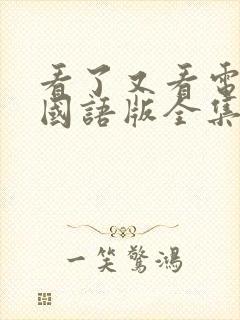 看了又看電
國語版全集
一笑驚鴻